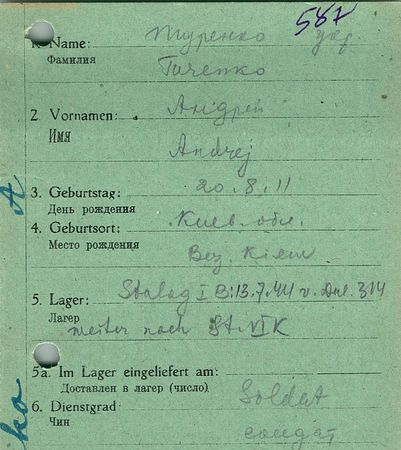 587
1. Name: Тиуренко укр.
Фамилия
2. Vornamen: Андрей
Имя
Andrej
3. Geburtstag: 20.8.11
День рождения
4. Geburtsort: Киев. обл.
Место рождения
Bez. Kiew
5. Lager: Stalag I B: 13.7.44 v. Dul. 314
Лагер weiter nach St. VI K
5a. Im Lager eingeliefert am:
Доставлен в лагер (число)
6. Dienstgrad Soldat
Чин солдат